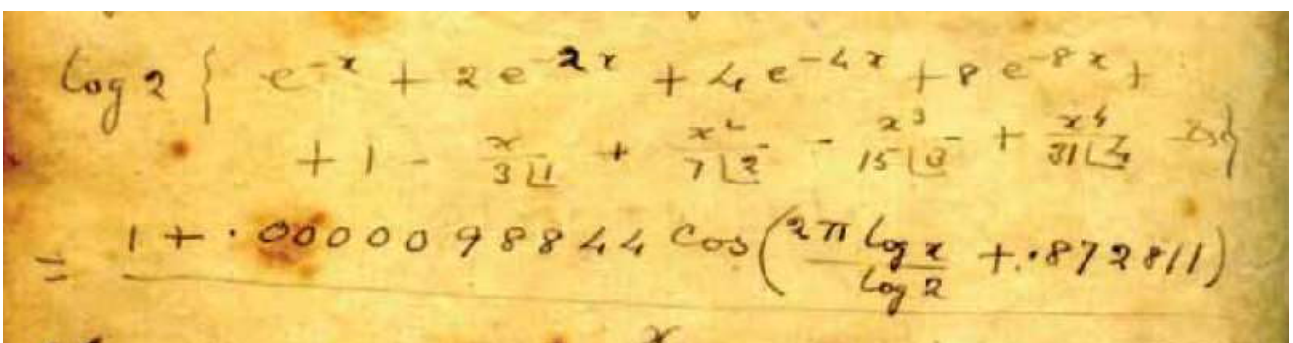 log 2 { e^{-x} + 2e^{-2x} + 4e^{-4x} + 8e^{-8x} +
+ 1 - x/(3|1) + x²/(7|2) - x³/(15|3) + x⁴/(31|4) - &c}
= 1 + .0000098844 cos(2π log x / log 2 + .872811)